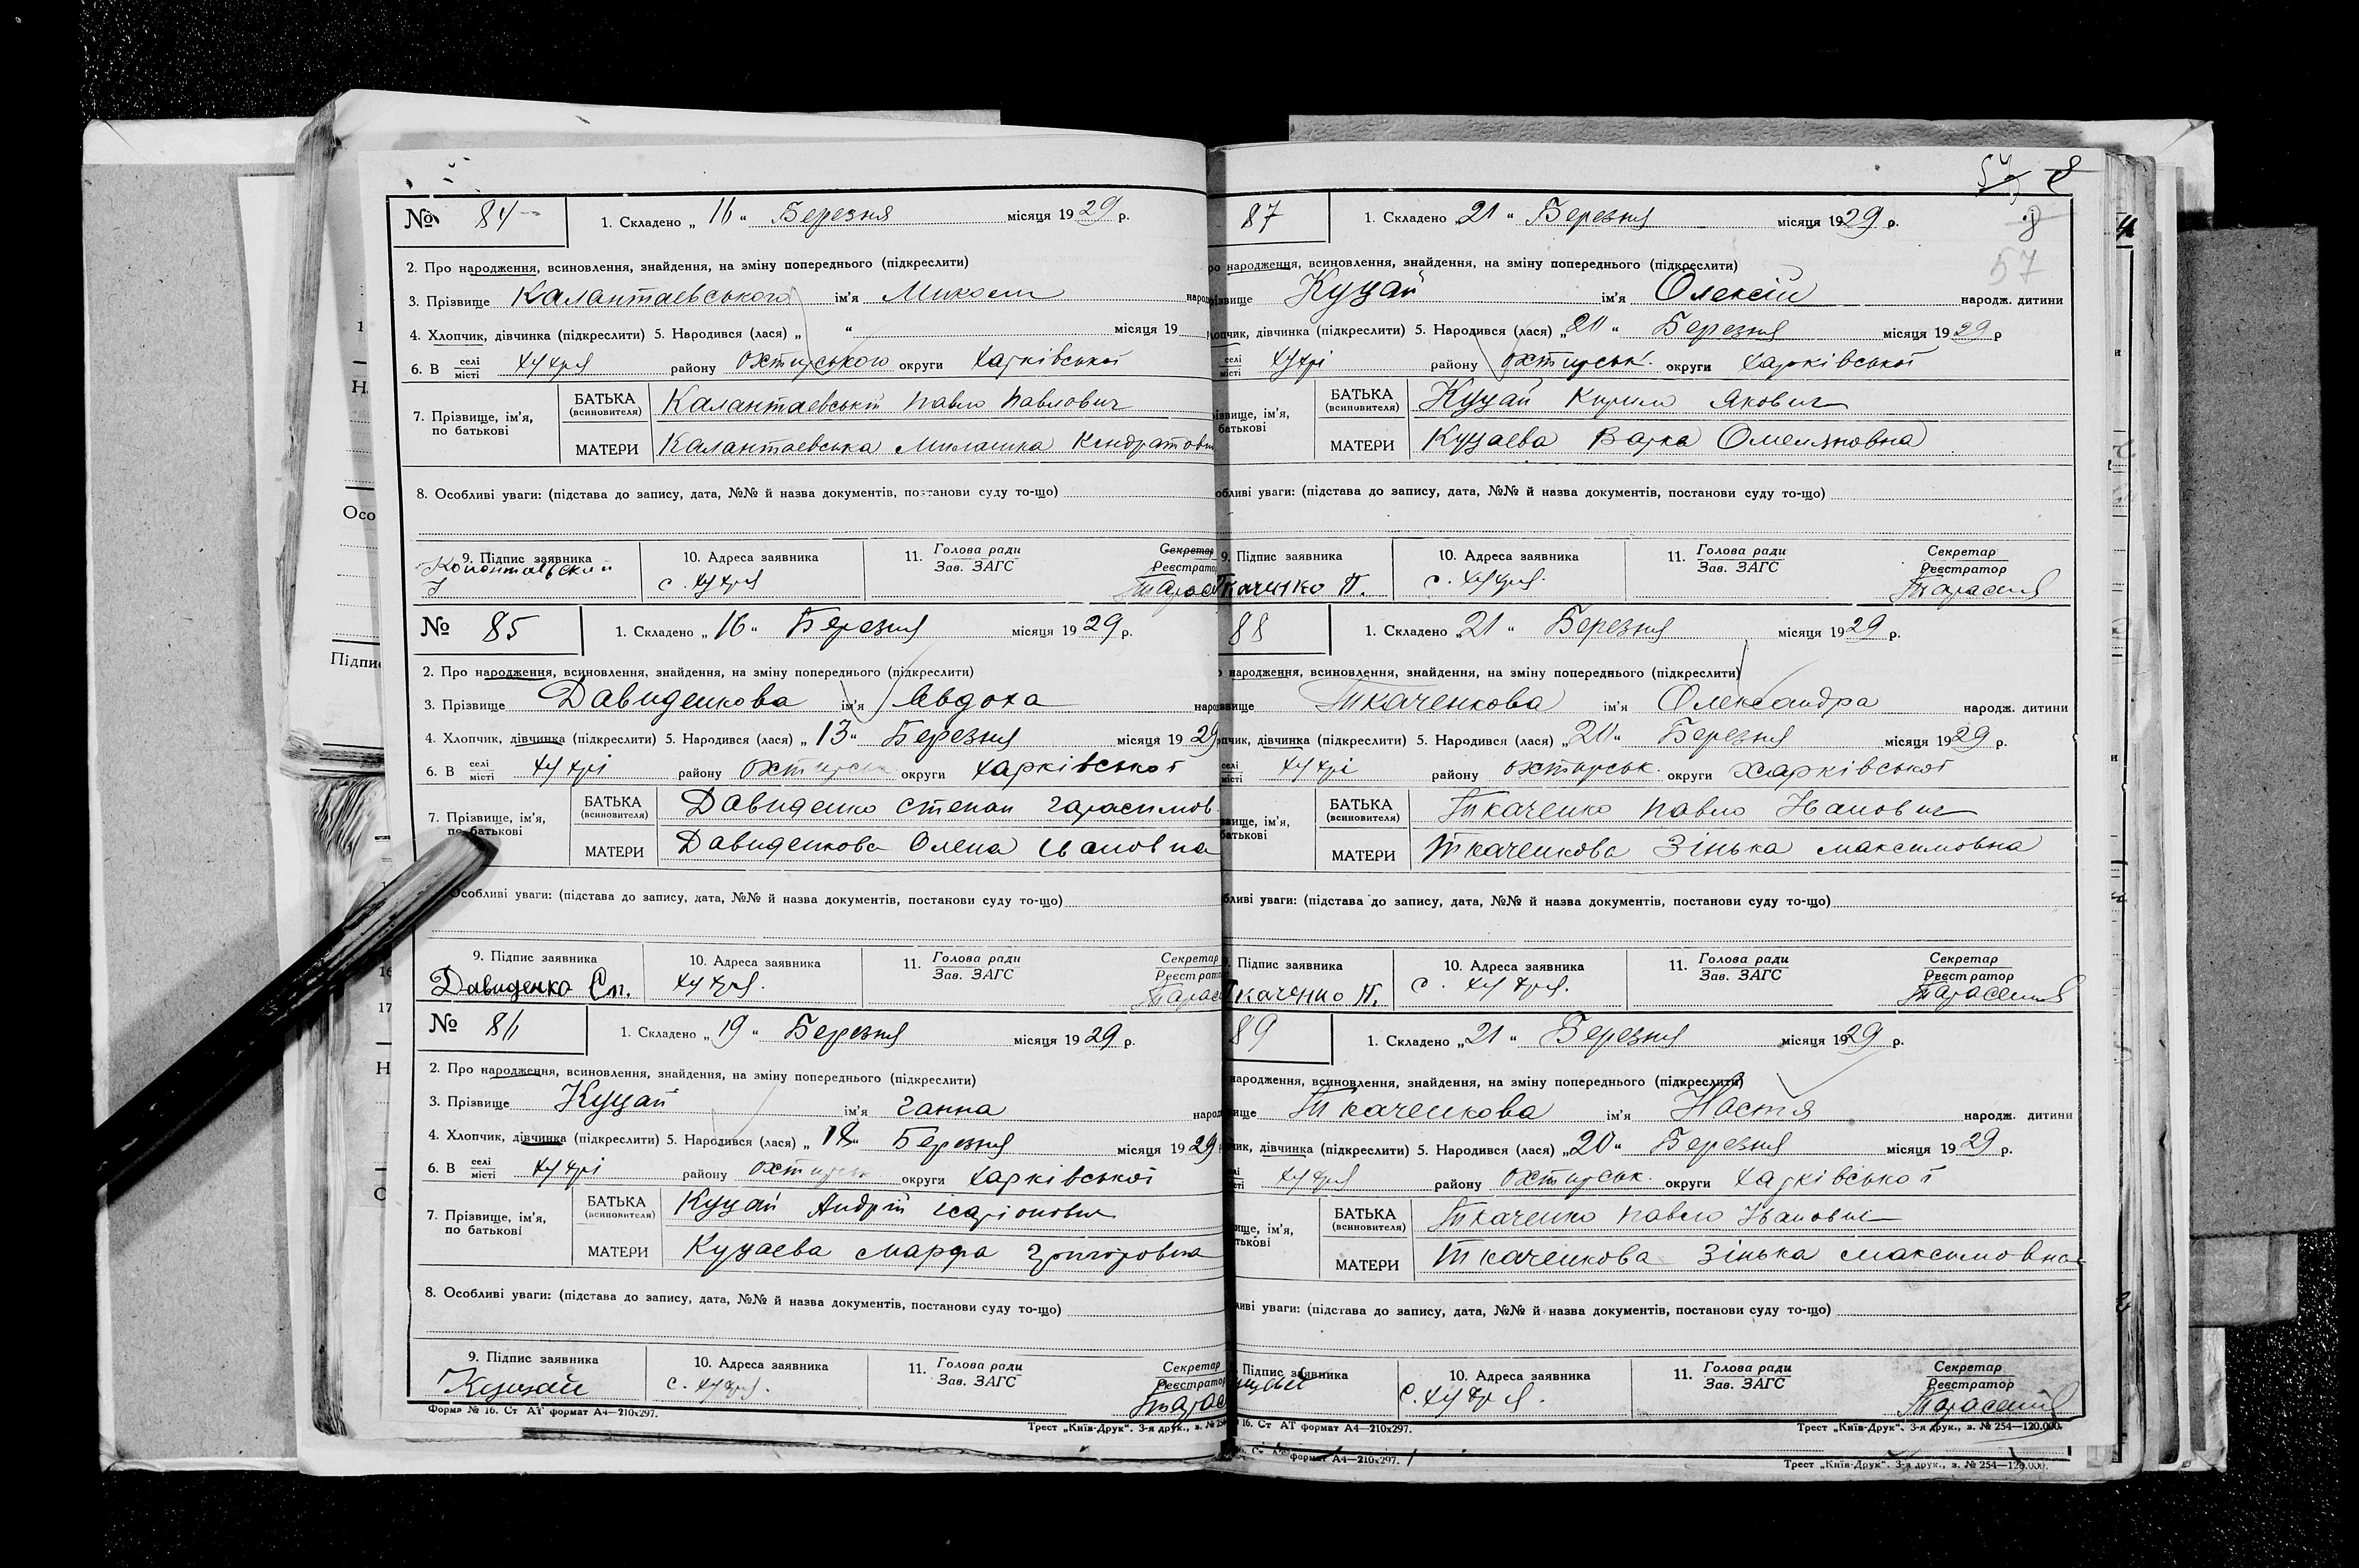 № 84 1. Складено „ 16 " Березня місяця 1929 р.
2. Про народження, всиновлення, знайдення, на зміну попереднього (підкреслити)
3. Прізвище Калантаєвського ім'я Миколи
4. Хлопчик, дівчинка (підкреслити) 5. Народився (лася) „ " місяця 19
6. В селі місті району Охтирського округи Харківської
7. Прізвище, ім'я, по батькові
БАТЬКА (всиновителя) Калантаевський Павло Павлович
МАТЕРИ Калантаевська Милашка Кендратовн
8. Особливі уваги: (підстава до запису, дата, №№ й назва документів, постанови суду то-що)
9. Підпис заявника 10. Адреса заявника 11. Голова ради Зав. ЗАГС Секретар Реєстратор
№ 85 1. Складено „ 16 " Березня місяця 1929 р.
2. Про народження, всиновлення, знайдення, на зміну попереднього (підкреслити)
3. Прізвище Давиденкова ім'я Євдоха
4. Хлопчик, дівчинка (підкреслити) 5. Народився (лася) „ 13 " Березня місяця 1929
6. В селі місті району Охтирськ округи Харківської
7. Прізвище, ім'я, по батькові
БАТЬКА (всиновителя) Давиденко Степан Гарасимов
МАТЕРИ Давиденкова Олена Ивановна
Особливі уваги: (підстава до запису, дата, №№ й назва документів, постанови суду то-що)
9. Підпис заявника 10. Адреса заявника 11. Голова ради Зав. ЗАГС Секретар Реєстратор
Давиденко Ст.
№ 86 1. Складено „ 19 " Березня місяця 1929 р.
2. Про народження, всиновлення, знайдення, на зміну попереднього (підкреслити)
3. Прізвище Куцай ім'я Ганна
4. Хлопчик, дівчинка (підкреслити) 5. Народився (лася) „ 18 " Березня місяця 1929
6. В селі місті району Охтирськ округи Харківської
7. Прізвище, ім'я, по батькові
БАТЬКА (всиновителя) Куцай Андрій Ісаріонович
МАТЕРИ Куцаева Марфа Григоровна
8. Особливі уваги: (підстава до запису, дата, №№ й назва документів, постанови суду то-що)
9. Підпис заявника 10. Адреса заявника 11. Голова ради Зав. ЗАГС Секретар Реєстратор
Куцай
Форма № 16. Ст АТ формат А4—210х297.
Трест „Київ-Друк". 3-я друк., з. № 254
57
87 1. Складено „ 21 " Березня місяця 1929 р.
народження, всиновлення, знайдення, на зміну попереднього (підкреслити)
Куцай ім'я Олексій народж. дитини
дівчинка (підкреслити) 5. Народився (лася) „ 20 " Березня місяця 1929 р
селі місті району Охтирськ. округи Харківської
БАТЬКА (всиновителя) Куцай Кирило Якович
МАТЕРИ Куцаева Варка Омеляновна
уваги: (підстава до запису, дата, №№ й назва документів, постанови суду то-що)
9. Підпис заявника 10. Адреса заявника 11. Голова ради Зав. ЗАГС Секретар Реєстратор
Ткаченко П. Тарасенко
88 1. Складено „ 21 " Березня місяця 1929 р.
народження, всиновлення, знайдення, на зміну попереднього (підкреслити)
Ткаченкова ім'я Олександра народж. дитини
дівчинка (підкреслити) 5. Народився (лася) „ 20 " Березня місяця 1929 р.
селі місті району Охтирськ. округи Харківської
БАТЬКА (всиновителя) Ткаченко Павло Іванович
МАТЕРИ Ткаченкова Зінька Максимовна
уваги: (підстава до запису, дата, №№ й назва документів, постанови суду то-що)
Підпис заявника 10. Адреса заявника 11. Голова ради Зав. ЗАГС Секретар Реєстратор
Ткаченко П. Тарасенко
89 1. Складено „ 21 " Березня місяця 1929 р.
народження, всиновлення, знайдення, на зміну попереднього (підкреслити)
Ткаченкова ім'я Настя народж. дитини
дівчинка (підкреслити) 5. Народився (лася) „ 20 " Березня місяця 1929 р.
району Охтирськ. округи Харківської
БАТЬКА (всиновителя) Ткаченко Павло Іванович
МАТЕРИ Ткаченкова Зінька Максимовна
уваги: (підстава до запису, дата, №№ й назва документів, постанови суду то-що)
Підпис заявника 10. Адреса заявника 11. Голова ради Зав. ЗАГС Секретар Реєстратор
Тарасенко
16. Ст АТ формат А4—210х297.
Трест „Київ-Друк". 3-я друк., з. № 254—120.000.
формат А4—210х297.
Трест „Київ-Друк". 3-я друк., з. № 254—120.000.